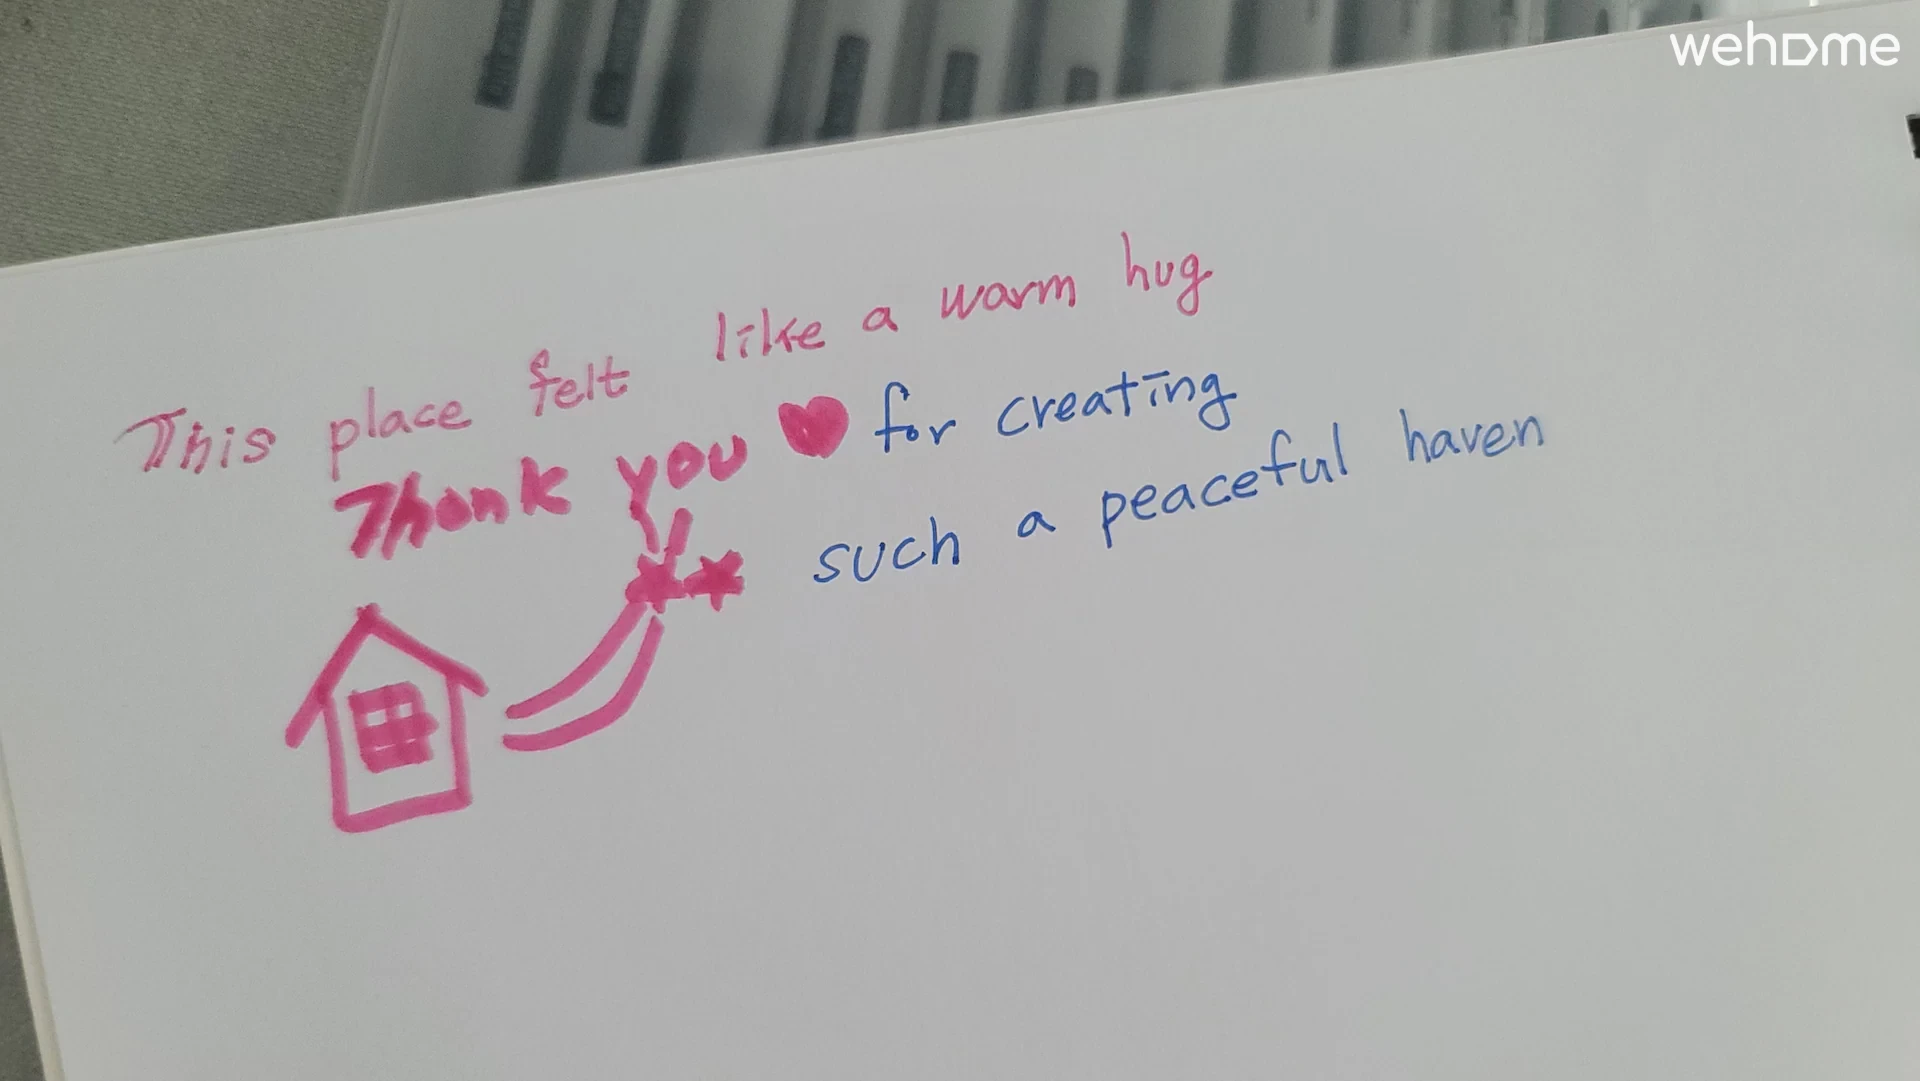 wehome
This place felt like a warm hug
Thank you ♥ for creating
such a peaceful haven